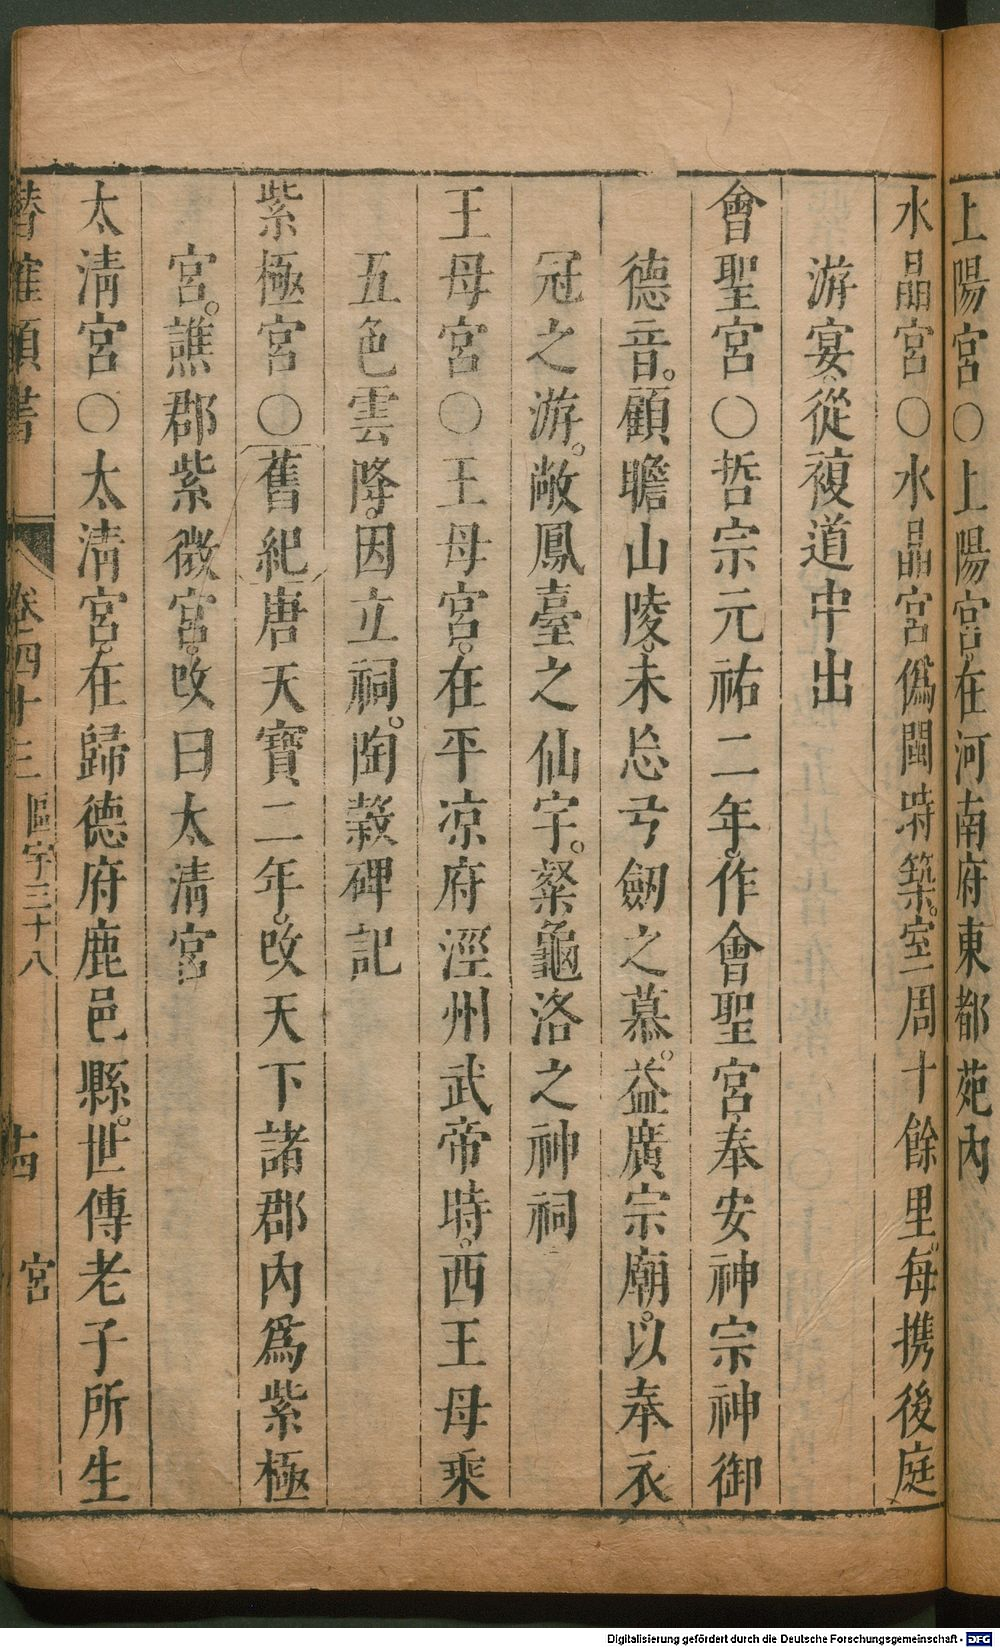 上陽宮○上陽宮在河南府東都苑內
水晶宮○水晶宮偽閩時築室周十餘里每携後庭
游宴從複道中出
會聖宮○哲宗元祐二年作會聖宮奉安神宗神御
德音顧瞻山陵未忘弓劒之慕益廣宗廟以奉衣
冠之游敞鳳臺之仙宇粲龜洛之神祠
王母宮○王母宮在平凉府涇州武帝時西王母乘
五色雲降因立祠陶穀碑記
紫極宮○舊紀唐天寶二年改天下諸郡內爲紫極
宮譙郡紫微宮改曰太清宮
太清宮○太清宮在歸德府鹿邑縣世傳老子所生
潛確類書 卷四十三 區宇三十八 十四 宮
Digitalisierung gefördert durch die Deutsche Forschungsgemeinschaft - DFG